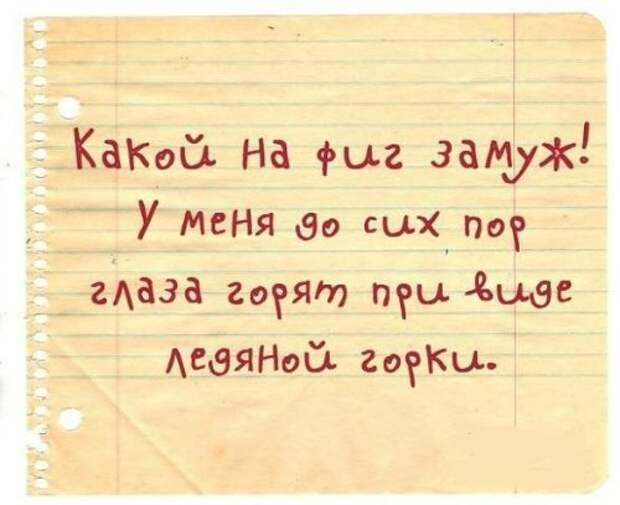 Какой на фиг замуж!
У меня до сих пор
глаза горят при виде
ледяной горки.